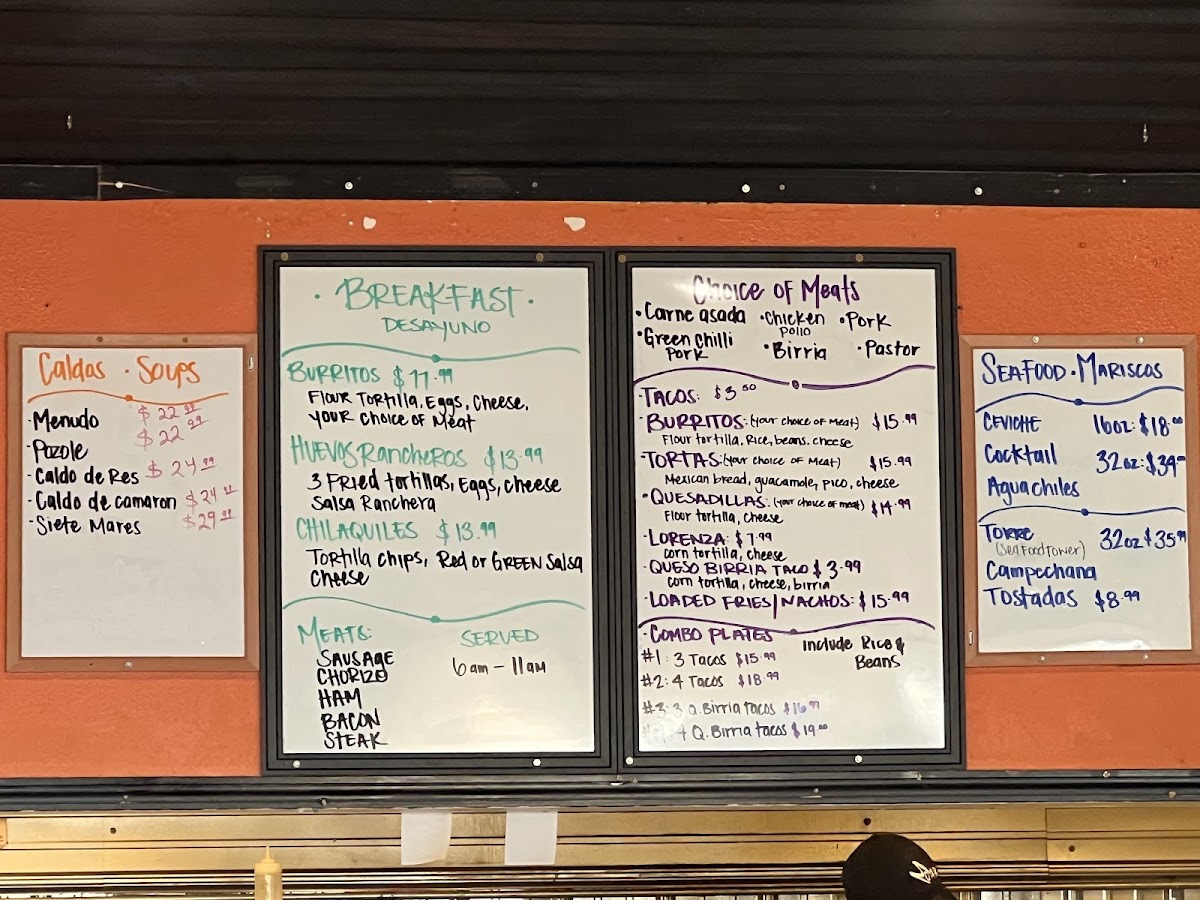 Caldos · Soups
·Menudo $22.99
·Pozole $22.99
·Caldo de Res $24.99
·Caldo de camaron $24.99
·Siete Mares $29.99
· BREAKFAST ·
DESAYUNO
BURRITOS $11.99
FLOUR TORTILLA, Eggs, Cheese,
YOUR CHOICE OF MEAT
HUEVOS RancHeROS $13.99
3 FRIED TORTILLAS, EGGS, CHEESE
SALSA RANCHERA
CHILAQUILES $13.99
TORTILLA CHIPS, RED OR GREEN SALSA
CHEESE
MEATS: SERVED
SAUSAGE 6am - 11AM
CHORIZO
HAM
BACON
STEAK
Choice of Meats
·Carne asada ·Chicken ·Pork
Pollo
·Green Chilli ·Birria ·Pastor
Pork
·TACOS: $3.50
·BURRITOS: (your choice of Meat) $15.99
Flour tortilla, Rice, beans, cheese
·TORTAS: (Your choice of Meat) $15.99
Mexican bread, guacamole, pico, cheese
·QUESADILLAS: (your choice of meat) $14.99
Flour tortilla, cheese
·LORENZA: $7.99
corn tortilla, cheese
·QUESO BIRRIA TACO $3.99
corn tortilla, cheese, birria
·LOADED FRIES/NACHOS: $15.99
·COMBO PLATES include Rice &
Beans
#1: 3 Tacos $15.99
#2: 4 Tacos $18.99
#3: 3 Q. Birria tacos $16.99
4 Q. Birria tacos $19.00
SEAFOOD · MARISCOS
CEVICHE 16oz: $18.00
Cocktail 32oz: $34
Aguachiles
Torre 32oz $35.99
(Sea Food Tower)
Campechana
Tostadas $8.99